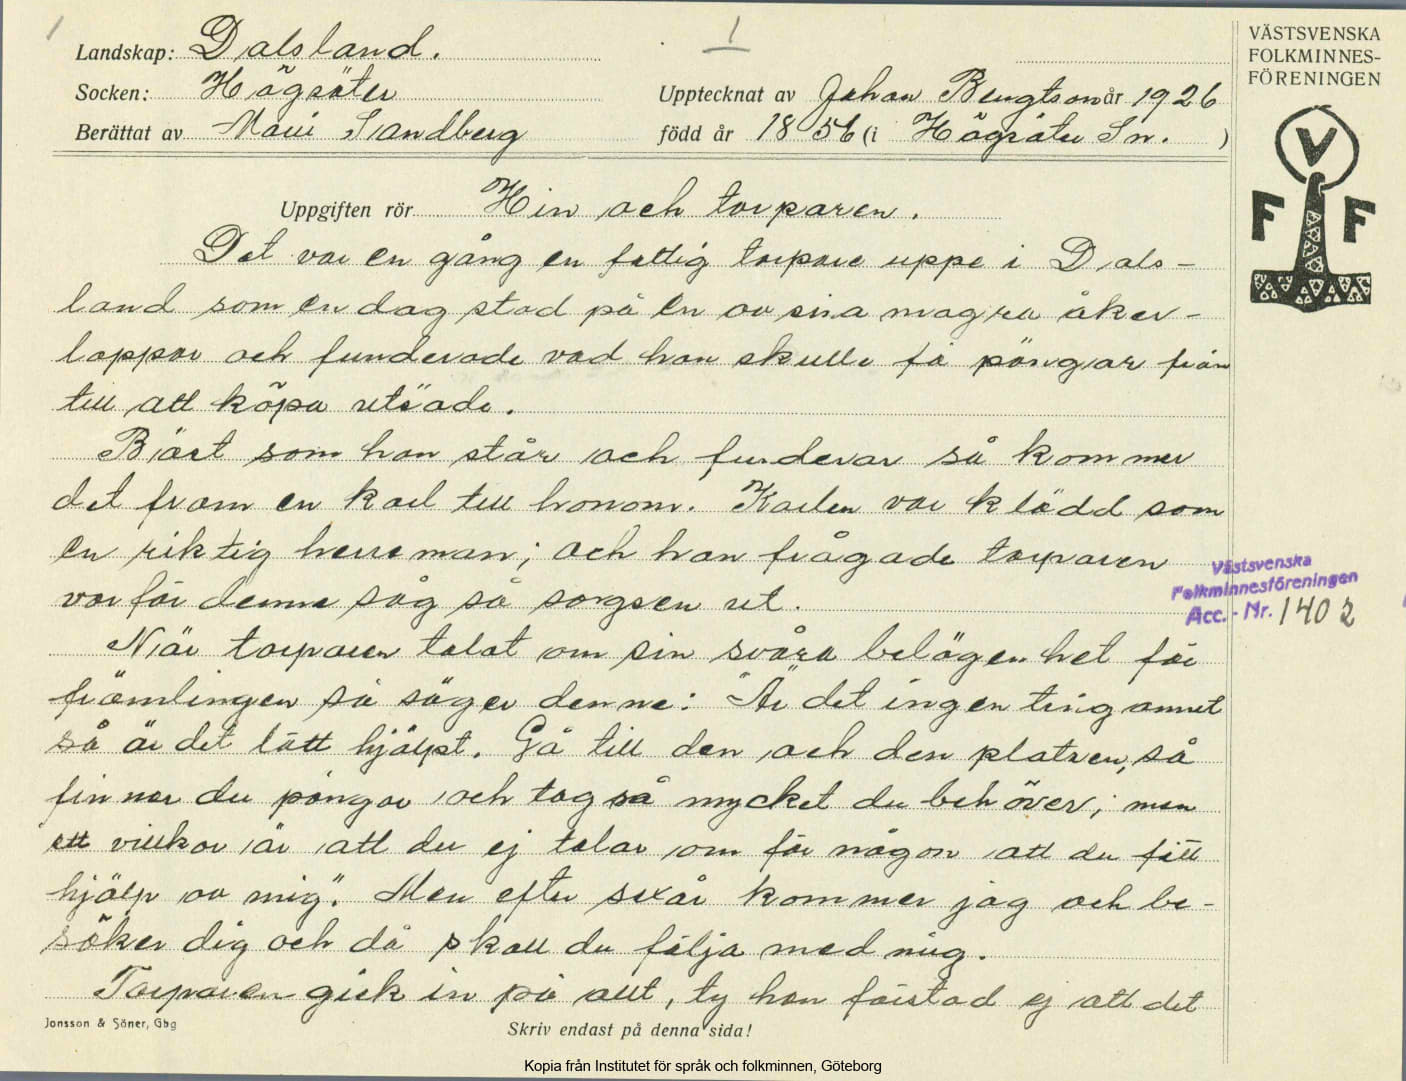 1
1
VÄSTSVENSKA
FOLKMINNES-
FÖRENINGEN
V
F F
Landskap: Dalsland.
Socken: Högsäter
Upptecknat av Johan Bengtson år 1926
Berättat av Maria Sandberg
född år 1856 (i Högsäter Sn. )
Uppgiften rör Hin och torparen.
Det var en gång en fattig torpare uppe i Dals-
land som en dag stod på en av sina magra åker-
lappar och funderade vad han skulle få pängar från
till att köpa utsäde.
Bäst som han står och funderar så kommer
det fram en karl till honom. Karlen var klädd som
en riktig herreman; och han frågade torparen
varför denne såg så sorgsen ut.
När torparen talat om sin svåra belägenhet för
främlingen så säger denne: "Är det ingenting annet
så är det lätt hjälpt. Gå till den och den platsen, så
finner du pängar och tag så mycket du behöver; men
ett villkor är att du ej talar om för någon att du fått
hjälp av mig". Men efter sex år kommer jag och be-
söker dig och då skall du följa med mig.
Torparen gick in på allt, ty han förstod ej att det
Västsvenska
Folkminnesföreningen
Acc. - Nr. 1402
Jonsson & Söner, Gbg
Skriv endast på denna sida!
Kopia från Institutet för språk och folkminnen, Göteborg